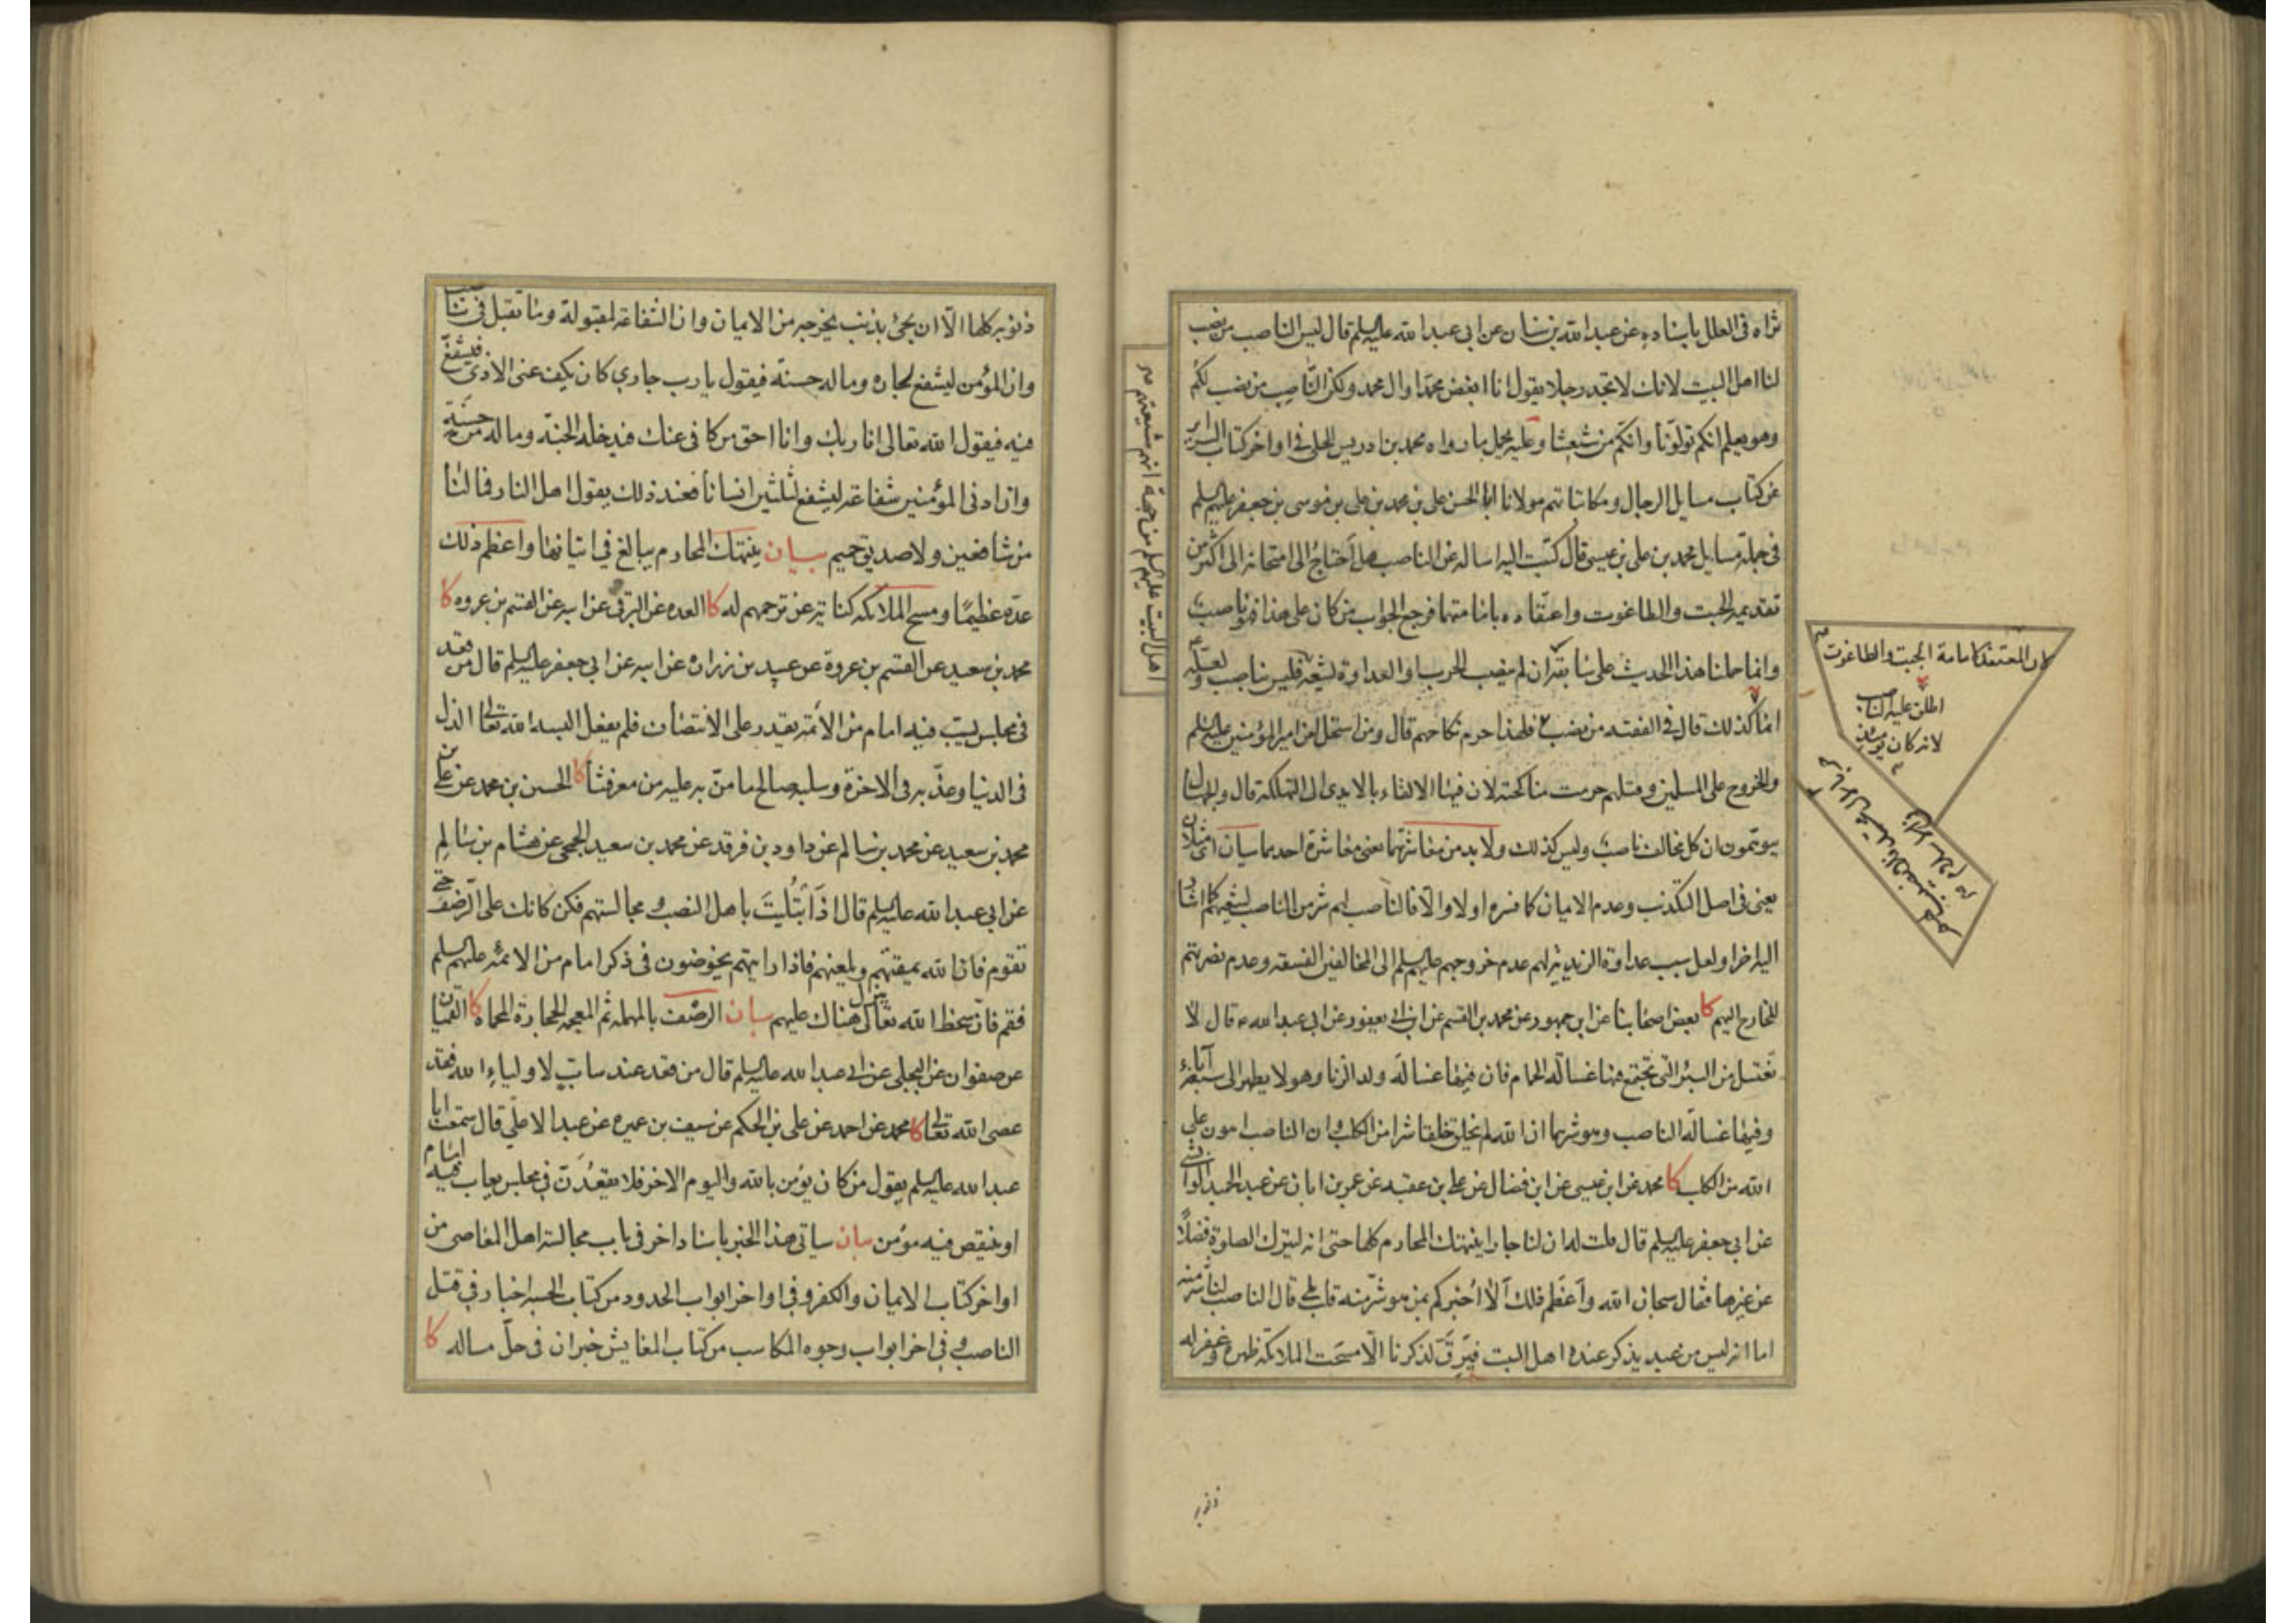 ثراه في العلل باسناده عن عبد الله بن سنان عن ابي عبد الله عليه السلم قال ليس الناصب من نصب
لنا اهل البيت لانك لا تجد رجلا يقول انا ابغض محمدا وال محمد ولكن الناصب من نصب لكم
وهو يعلم انكم تولونا وانكم من شيعتنا وعليه يحمل ما رواه محمد بن ادريس الحلي في اواخر كتاب السراير
عن كتاب مسايل الرجال ومكاتباتهم مولانا ابا الحسن علي بن محمد بن علي بن موسى بن جعفر عليهم السلم
في جملة مسايل محمد بن علي بن عيسى قال كتبت اليه اساله عن الناصب هل احتاج الى امتحانه الى اكثر من
تقديمه الجبت والطاغوت واعتقاده بامامتهما فرجع الجواب من كان على هذا فهو ناصب
وانما حملنا هذا الحديث على ما بقر ان لم ينصب الحرب او العداوة لشيعته فليس بناصب
انما كذلك قال في الفقيه من نصب فلهذا حرم نكاحهم قال ومن استحل لعن امير المؤمنين عليه السلم
والخروج على المسلمين وقتلهم حرمت مناكحته لان فيها الالقاء بالايدي الى التهلكة قال والجهال
يتوهمون ان كل مخالف ناصب وليس كذلك ولا بد من معاشرتهما يعني معاشرة احدهما بيان
يعني في اصل التكذيب وعدم الايمان كما فسره اولا والا فالناصب لهم شر من الناصب لشيعتهم كما اشار
اليه اخرا ولعل سبب عداوة الزيدية لهم عدم خروجهم عليهم السلم الى المخالفين الفسقة وعدم نصرتهم
للخارج اليهم كا بعض اصحابنا عن ابن جمهور عن محمد بن القسم عن ابن ابي يعفور عن ابي عبد الله ع قال لا
تغتسل من البئر التي تجتمع فيها غسالة الحمام فان فيها غسالة ولد الزنا وهو لا يطهر الى سبعة آباء
وفيها غسالة الناصب وهو شرهما ان الله لم يخلق خلقا شرا من الكلب وان الناصب اهون على
الله من الكلب كا محمد عن ابن عيسى عن ابن فضال عن علي بن عقبه عن عمر بن ابان عن عبد الحميد الوابشي
عن ابي جعفر عليه السلم قال قلت له ان لنا جارا ينتهك المحارم كلها حتى انه ليترك الصلوة فضلا
عن غيرها فقال سبحان الله واعظم ذلك الا اخبركم بمن هو شر منه قلت بلى قال الناصب لنا شر منه
اما انه ليس من عبد يذكر عنده اهل البيت فيرق لذكرنا الا مسحت الملائكة ظهره وغفر له
لان المعتقد كامامة الجبت والطاغوت
اطلق عليه الناصب
لانه كان يومئذ
اهل البيت عليهم السلم من جهة انهم شيعتهم
ذنوبه
ذنوبه كلها الا ان يجئ بذنب يخرجه من الايمان وان الشفاعة لمقبولة وما تقبل في ناصب
وان المؤمن ليشفع لجاره وماله حسنة فيقول يا رب جاري كان يكف عني الاذى فيشفع
فيه فيقول الله تعالى انا ربك وانا احق من كافى عنك فيدخله الجنة وماله من حسنة
وان ادنى المؤمنين شفاعة ليشفع لثلثين انسانا فعند ذلك يقول اهل النار فما لنا
من شافعين ولا صديق حميم بيان ينتهك المحارم يبالغ في اتيانها واعظم ذلك
عده عظيما ومسح الملائكة كناية عن ترحمهم له كا العده عن البرقي عن ابيه عن القسم بن عروه كا
محمد بن سعيد عن القسم بن عروة عن عبيد بن زراره عن ابيه عن ابي جعفر عليه السلم قال من قعد
في مجلس يسب فيه امام من الائمة يقدر على الانتصاف فلم يفعل البسه الله تعالى الذل
في الدنيا وعذبه في الاخرة وسلبه صالح ما من به عليه من معرفتنا كا الحسين بن محمد عن علي بن
محمد بن سعيد عن محمد بن سالم عن داود بن فرقد عن محمد بن سعيد الجمحي عن هشام بن سالم
عن ابي عبد الله عليه السلم قال اذا ابتليت باهل النصب ومجالستهم فكن كانك على الرضف حتى
تقوم فان الله يمقتهم ويلعنهم فاذا رايتهم يخوضون في ذكر امام من الائمة عليهم السلم
فقم فان سخط الله تعالى ينزل هناك عليهم بيان الرضف بالمهملة ثم المعجمة الحجارة المحماة كا القميان
عن صفوان عن البجلي عن ابي عبد الله عليه السلم قال من قعد عند ساب لاولياء الله فقد
عصى الله تعالى كا محمد عن احمد عن علي بن الحكم عن سيف بن عميره عن عبد الاعلى قال سمعت ابا
عبد الله عليه السلم يقول من كان يؤمن بالله واليوم الاخر فلا يقعدن في مجلس يعاب فيه امام
او ينتقص فيه مؤمن بيان سياتي هذا الخبر باسناد اخر في باب مجالسة اهل المعاصي من
اواخر كتاب الايمان والكفر وفي اواخر ابواب الحدود من كتاب الحسبه اخبار في قتل
الناصب وفي اخر ابواب وجوه المكاسب من كتاب المعايش خبران في حل ماله كا